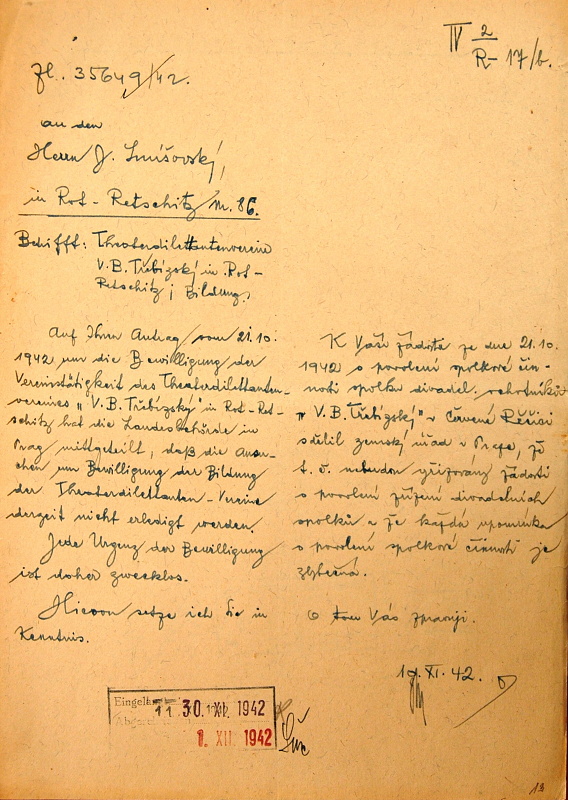 IV 2/R- 17/b.
Zl. 35649/42.
an den
Herrn J. Smíšovský,
in Rot-Retschitz Nr. 86.
Betrifft: Theaterdilettantenverein
V.B. Třebízský in Rot-
Retschitz; Bildung.
Auf Ihren Antrag vom 21.10.
1942 um die Bewilligung der
Vereinstätigkeit des Theaterdilettanten-
vereines „V.B. Třebízský" in Rot-Ret-
schitz hat die Landesbehörde in
Prag mitgeteilt, daß die Ansu-
chen um Bewilligung der Bildung
der Theaterdilettanten-Vereine
derzeit nicht erledigt werden.
Jede Urgenz der Bewilligung
ist daher zwecklos.
Hievon setze ich Sie in
Kenntnis.
K Vaší žádosti ze dne 21.10.
1942 o povolení spolkové čin-
nosti spolku divadel. ochotníků
„V.B. Třebízský" v Červené Řečici
sdělil zemský úřad v Praze, že
t. č. nebudou vyřizovány žádosti
o povolení zřízení divadelních
spolků a že každá upomínka
o povolení spolkové činnosti je
zbytečná.
O tom Vás zpravuji.
19. XI. 42.
Eingel
30. XI. 1942
Abge
1. XII. 1942
13